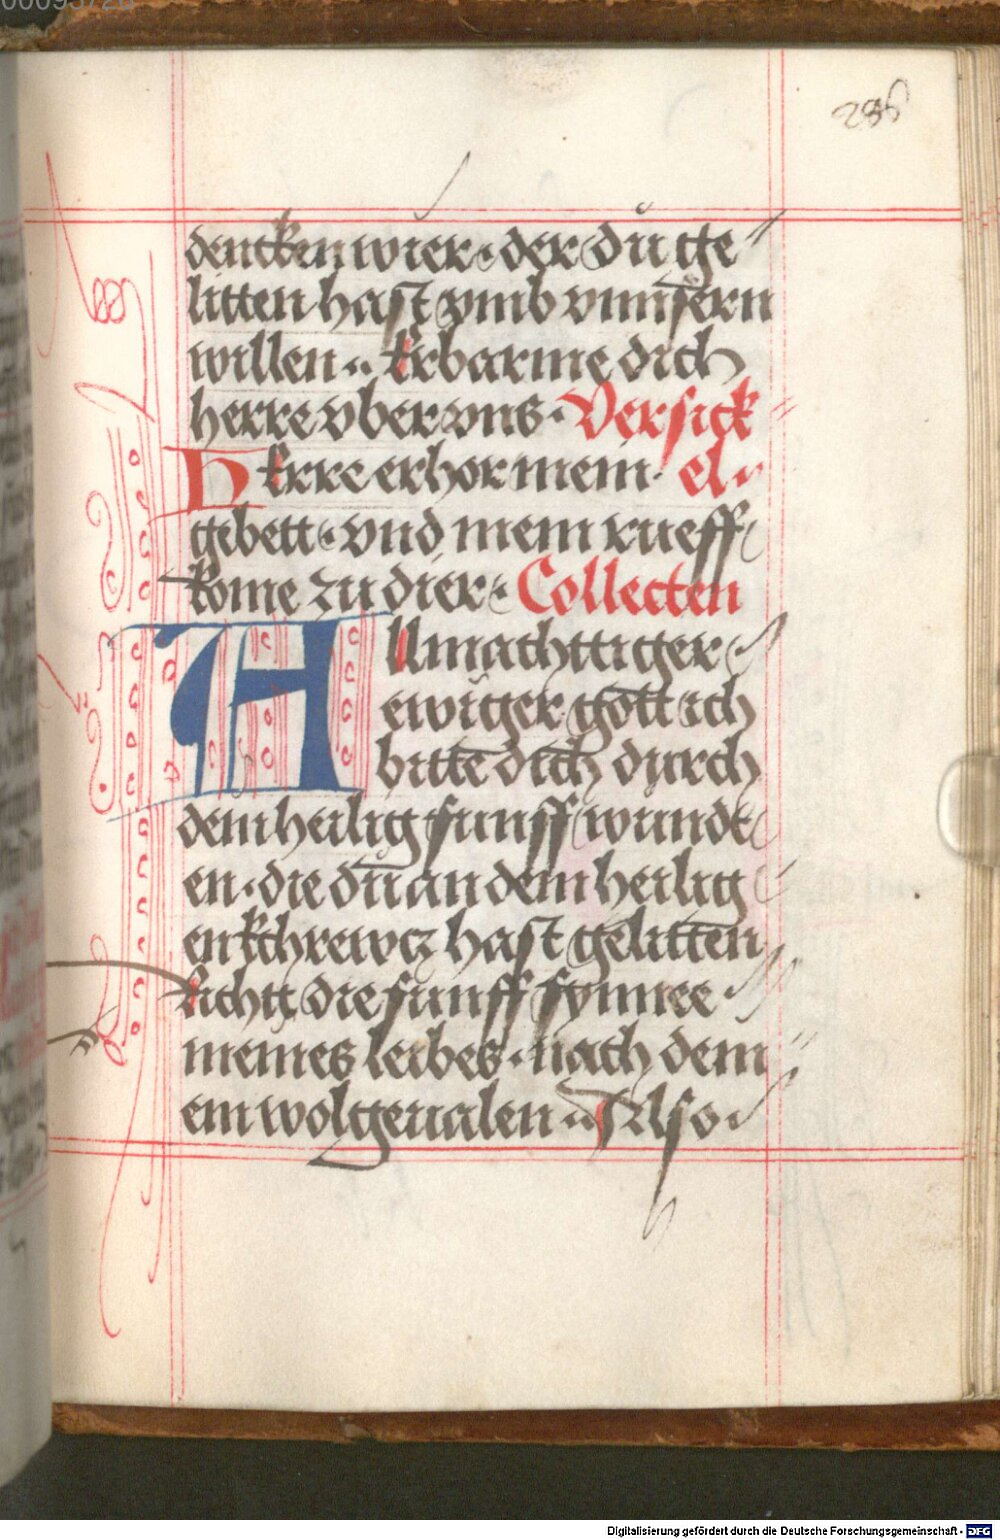 286
denckenn wier · der du ge
litten hast vmb vnnsern
willen ·· Erbarme dich
herre vber vns · Versick
Herre erhor mein · el ·
gebett · vnd mein rueff
kome zu dier · Collecten
Allmachttiger
ewiger gott ich
bitte dich durch
dein heilig funff wundt
en · die du an dem heilig
en kchrewcz hast gelitten
Richtt die funff synnee ·
meines leibes · nach dem
em wolgeualen ·· Also ·
Digitalisierung gefördert durch die Deutsche Forschungsgemeinschaft - DFG